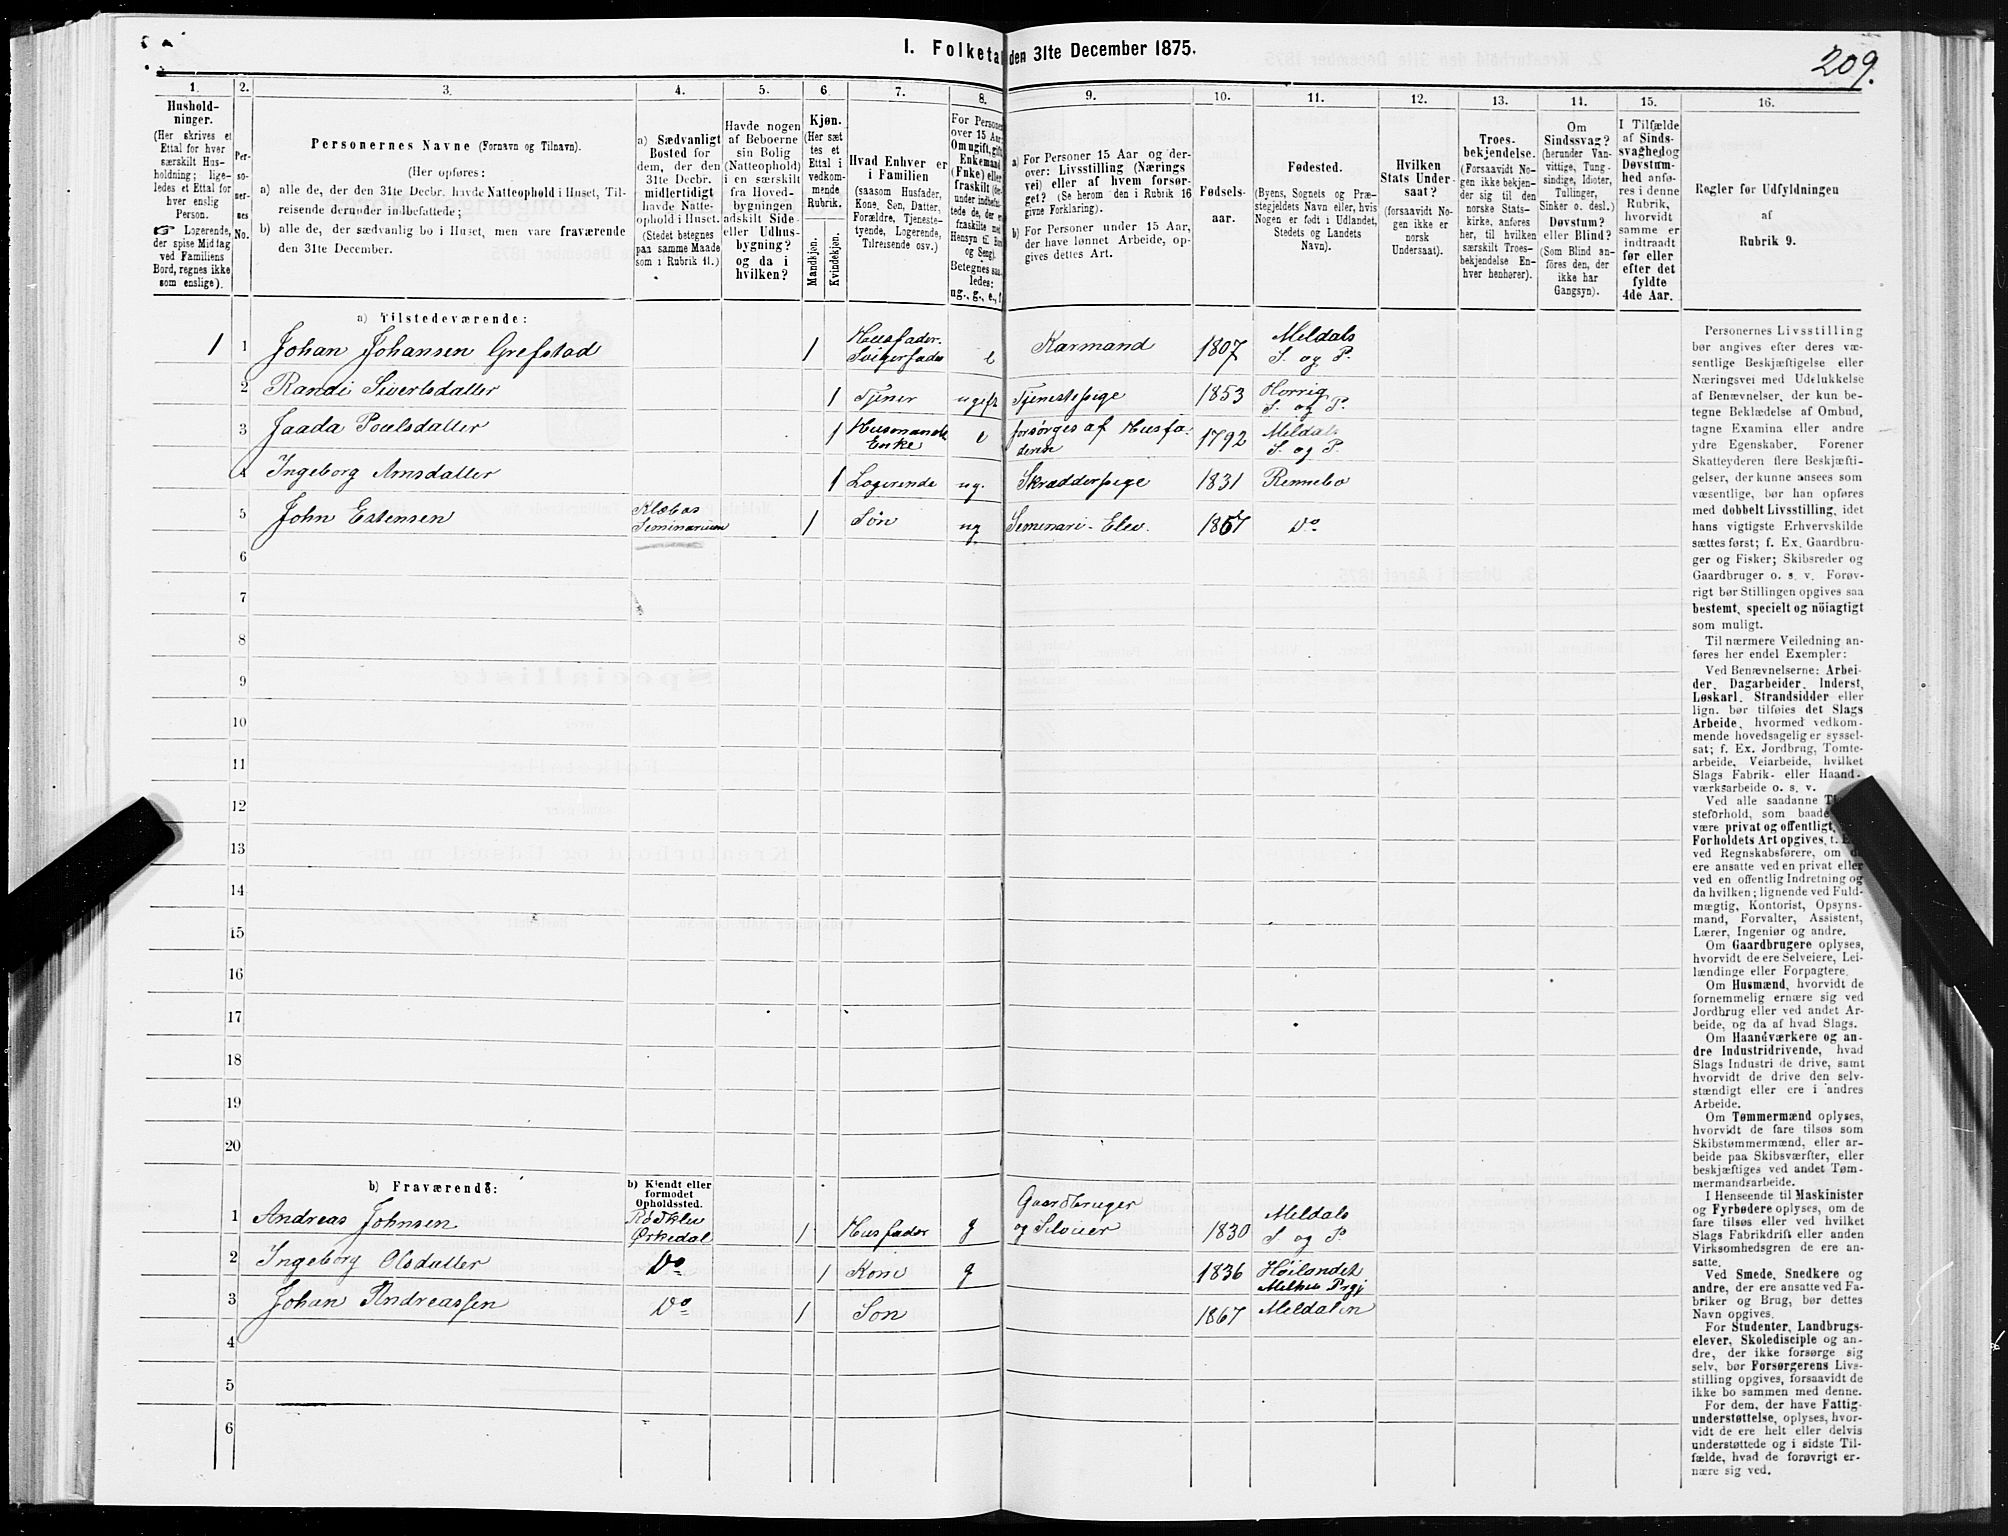 I. Folketal den 31te December 1875.
209.
1. 2. 3. 4. 5. 6. 7. 8. 9. 10. 11. 12. 13. 14. 15. 16.
Hushold-
ninger.
(Her skrives et
Ettal for hver
særskilt Hus-
holdning; lige-
ledes et Ettal for
hver enslig
Person.
☞ Logerende,
der spise Middag
ved Familiens
Bord, regnes ikke
som enslige).
Per-
so-
ner-
nes
No.
Personernes Navne (Fornavn og Tilnavn).
(Her opføres:
a) alle de, der den 31te Decbr. havde Natteophold i Huset, Til-
reisende derunder indbefattede;
b) alle de, der sædvanlig bo i Huset, men vare fraværende
den 31te December.
a) Sædvanligt
Bosted for
dem, der den
31te Decbr.
midlertidigt
havde Natte-
ophold i Huset.
(Stedet betegnes
paa samme Maade
som i Rubrik 11.)
Havde nogen
af Beboerne
sin Bolig
(Natteophold)
i en særskilt
fra Hoved-
bygningen
adskilt Side-
eller Udhus-
bygning?
og da i
hvilken?
Kjøn.
(Her sæt-
tes et
Ettal i
vedkom-
mende
Rubrik.
Mandkjøn.
Kvindekjøn.
Hvad Enhver er
i Familien
(saasom Husfader,
Kone, Søn, Datter,
Forældre, Tjeneste-
tyende, Logerende,
Tilreisende osv.)
For Personer
over 15 Aar:
Om ugift, gift,
Enkemand
(Enke) eller
fraskilt
Betegnes saa-
ledes:
ug., g., e., f.
a) For Personer 15 Aar og der-
over: Livsstilling (Nærings-
vei) eller af hvem forsør-
get? (Se herom den i Rubrik 16
givne Forklaring).
b) For Personer under 15 Aar,
der have lønnet Arbeide, op-
gives dettes Art.
Fødsels-
aar.
Fødested.
(Byens, Sognets og Præ-
stegjeldets Navn eller, hvis
Nogen er født i Udlandet,
Stedets og Landets
Navn).
Hvilken
Stats Under-
saat?
(forsaavidt No-
gen ikke er
norsk
Undersaat).
Troes-
bekjendelse.
(Forsaavidt No-
gen ikke bekjen-
der sig til den
norske Stats-
kirke, anføres
her, til hvilken
særskilt Troes-
bekjendelse En-
hver henhører).
Om
Sindssvag?
(herunder Van-
vittige, Tung-
sindige, Idioter,
Tullinger,
Sinker o. desl.)
Døvstum?
eller Blind?
(Som Blind an-
føres den, der
ikke har
Gangsyn).
I Tilfælde
af Sinds-
svaghed og
Døvstum-
hed anfø-
res i denne
Rubrik,
hvorvidt
samme er
indtraadt
før eller
efter det
fyldte
4de Aar.
Regler for Udfyldningen
af
Rubrik 9.
a) Tilstedeværende:
1 1 Johan Johansen Grefstad 1 Husfader. Svigerfader e Kaarmand 1807 Meldals S. og P.
2 Randi Sivertsdatter 1 Tjener ugift Tjenestepige 1853 Horrig S. og P.
3 Jaada Poulsdatter 1 Husmands Enke e forsørges af Husfaderen 1792 Meldals S. og P.
4 Ingeborg Arnsdatter 1 Logerende ug. Skrædderpige 1831 Rennebo
5 John Estensen Klæbos Seminarium 1 Søn ug. Seminari-Elev. 1857 Do
6
7
8
9
10
11
12
13
14
15
16
17
18
19
20
b) Fraværende:
b) Kjendt eller
formodet
Opholdssted.
1 Andreas Johnsen Rødklev Ørkedal 1 Husfader g Gaardbruger og Selveier 1830 Meldals S. og P.
2 Ingeborg Olsdatter Do 1 Kone g 1836 Høilandet Melhus Prgj
3 Johan Andreassen Do 1 Søn 1867 Meldalen
4
5
6
Personernes Livsstilling
bør angives efter deres væ-
sentlige Beskjæftigelse eller
Næringsvei med Udelukkelse
af Benævnelser, der kun be-
tegne Beklædelse af Ombud,
tagne Examina eller andre
ydre Egenskaber. Forener
Skatteyderen flere Beskjæfti-
gelser, der kunne ansees som
væsentlige, bør han opføres
med dobbelt Livsstilling, idet
hans vigtigste Erhvervskilde
sættes først; f. Ex. Gaardbru-
ger og Fisker; Skibsreder og
Gaardbruger o. s. v. Forøv-
rigt bør Stillingen opgives saa
bestemt, specielt og nöiagtigt
som muligt.
Til nærmere Veiledning an-
føres her endel Exempler:
Ved Benævnelserne: Arbei-
der, Dagarbeider, Inderst,
Løskarl, Strandsidder eller
lign. bør tilføies det Slags
Arbeide, hvormed vedkom-
mende hovedsagelig er syssel-
sat; f. Ex. Jordbrug, Tomte-
arbeide, Veiarbeide, hvilket
Slags Fabrik- eller Haand-
værksarbeide o. s. v.
Ved alle saadanne
steforhold, som baade
være privat og offentligt,
Forholdets Art opgives, t. Ex.
ved Regnskabsførere, om de
ere ansatte ved en privat eller
ved en offentlig Indretning og
da hvilken; lignende ved Fuld-
mægtig, Kontorist, Opsyns-
mand, Forvalter, Assistent,
Lærer, Ingeniør og andre.
Om Gaardbrugere oplyses,
hvorvidt de ere Selveiere, Lei-
lændinge eller Forpagtere.
Om Husmænd, hvorvidt de
fornemmelig ernære sig ved
Jordbrug eller ved andet Ar-
beide, og da af hvad Slags.
Om Haandværkere og an-
dre Industridrivende, hvad
Slags Industri de drive, samt
hvorvidt de drive den selv-
stændigt eller ere i andres
Arbeide.
Om Tømmermænd oplyses,
hvorvidt de fare tilsøs som
Skibstømmermænd, eller ar-
beide paa Skibsværfter, eller
beskjæftiges ved andet Tøm-
mermandsarbeide.
I Henseende til Maskinister
og Fyrbødere oplyses, om de
fare tilsøs eller ved hvilket
Slags Fabrikdrift eller anden
Virksomhedsgren de ere an-
satte.
Ved Smede, Snedkere og
andre, der ere ansatte ved Fa-
briker og Brug, bør dettes
Navn opgives.
For Studenter, Landbrugs-
elever, Skoledisciple og an-
dre, der ikke forsørge sig
selv, bør Forsørgerens Livs-
stilling opgives, forsaavidt de
ikke bo sammen med denne.
For dem, der have Fattig-
understøttelse, oplyses, hvor-
vidt de ere helt eller delvis
understøttede og i sidste Til-
fælde, hvad de forøvrigt er-
nære sig ved.